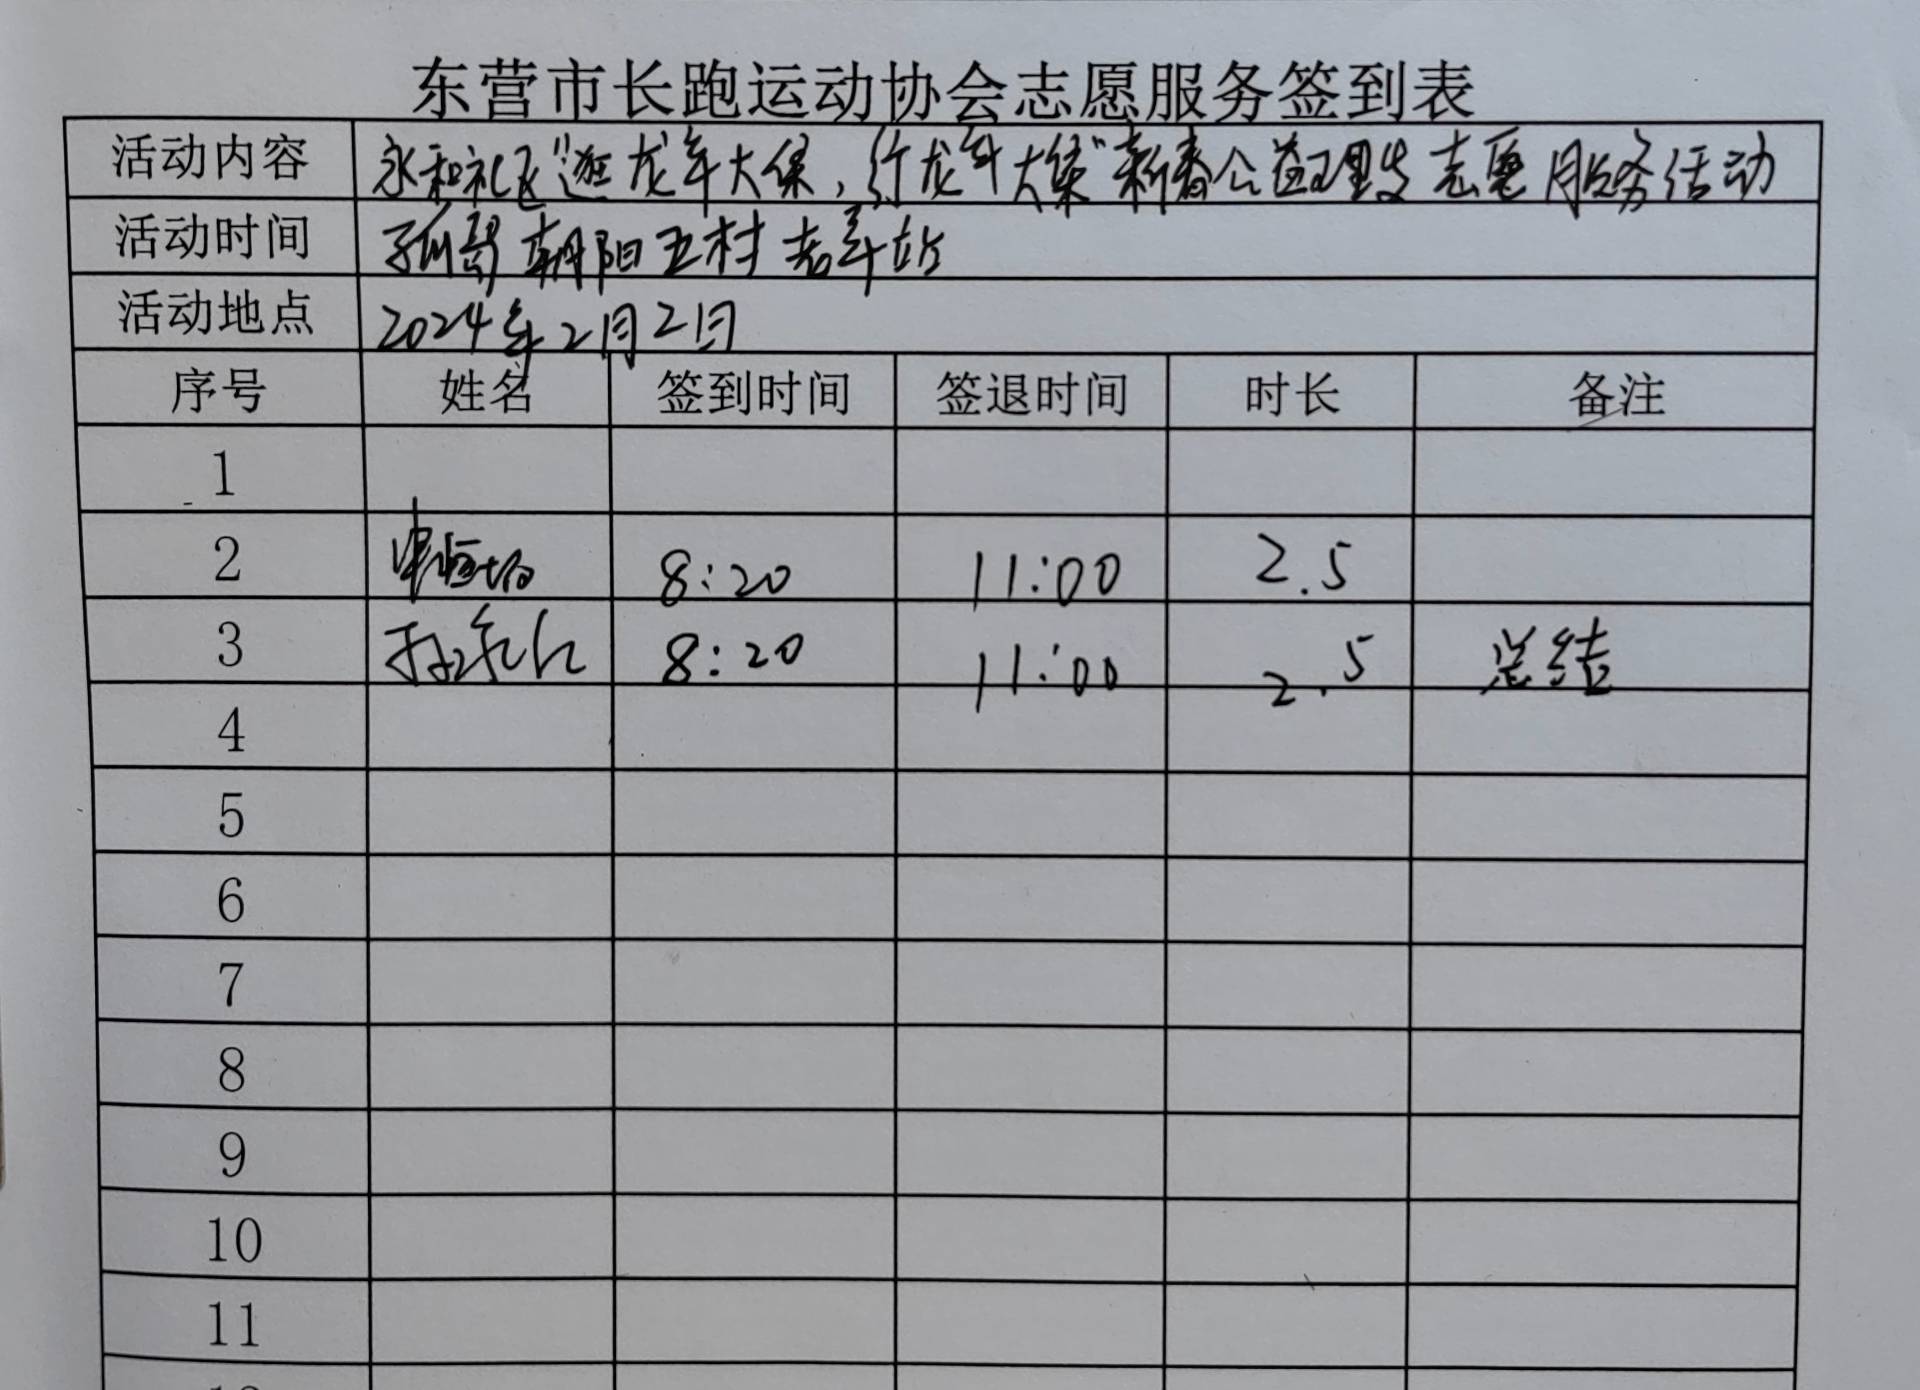 东营市长跑运动协会志愿服务签到表
活动内容 永和社区"逛龙年大集,行龙年大集"新春公益理发志愿服务活动
活动时间 孤岛朝阳五村老年站
活动地点 2024年2月2日
序号 姓名 签到时间 签退时间 时长 备注
1
2 8:20 11:00 2.5
3 8:20 11:00 2.5 总结
4
5
6
7
8
9
10
11